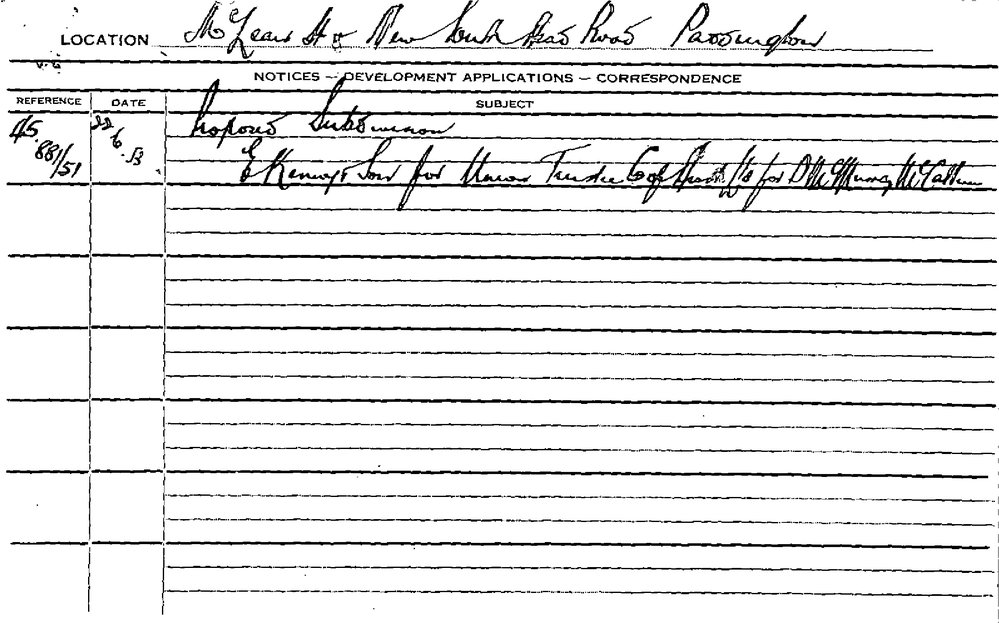 LOCATION McLean St & New South Head Road Paddington
NOTICES - DEVELOPMENT APPLICATIONS - CORRESPONDENCE
REFERENCE DATE SUBJECT
45. 881/51 22 6. 53 Proposed Subdivision
E Kenny & Son for Union Trustee Co of Aust Ltd for D McMurray McCallum